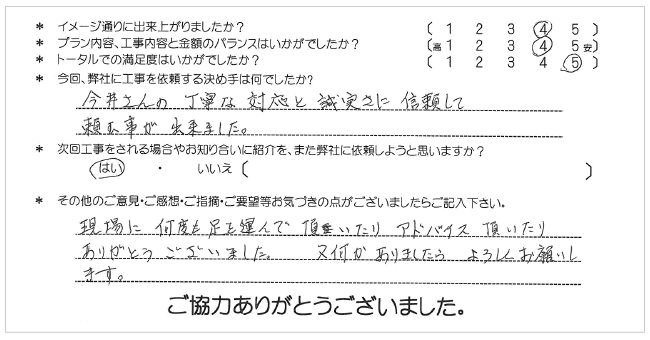 * イメージ通りに出来上がりましたか? ( 1 2 3 4 5 )
* プラン内容、工事内容と金額のバランスはいかがでしたか? (高 1 2 3 4 5 安)
* トータルでの満足度はいかがでしたか? ( 1 2 3 4 5 )
* 今回、弊社に工事を依頼する決め手は何でしたか?
今井さんの 丁寧な 対応と 誠実さに 信頼して
頼む事が 出来ました。
* 次回工事をされる場合やお知り合いに紹介を、また弊社に依頼しようと思いますか?
はい ・ いいえ ( )
* その他のご意見・ご感想・ご指摘・ご要望等お気づきの点がございましたらご記入下さい。
現場に 何度も 足を運んで 頂いたり アドバイス 頂いたり
ありがとう ございました。 又何か ありましたら よろしくお願いし
ます。
ご協力ありがとうございました。